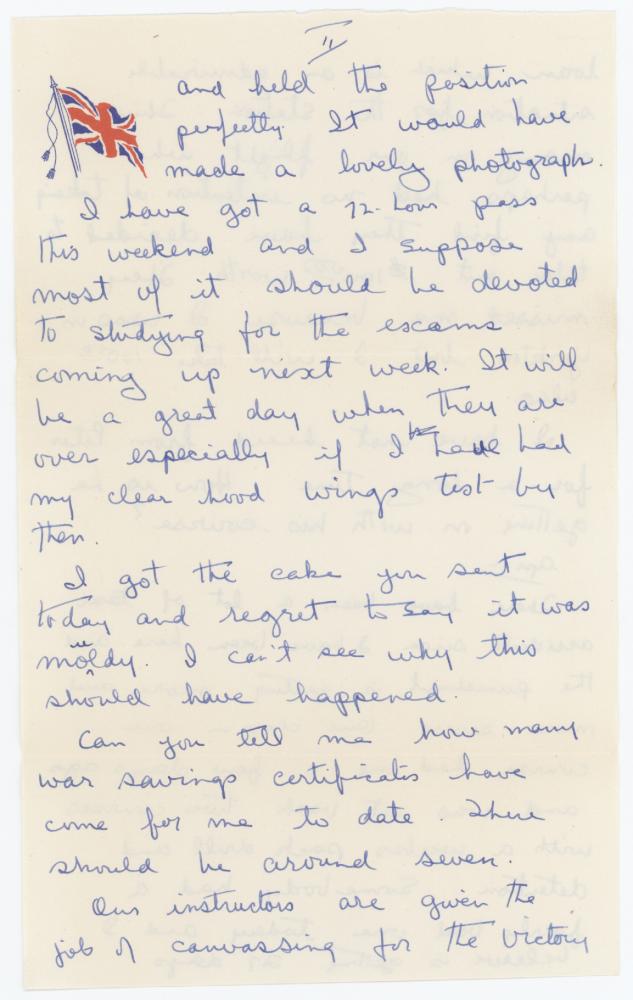 II
and held the position
perfectly. It would have
made a lovely photograph.
I have got a 72-hour pass
this weekend and I suppose
most of it should be devoted
to studying for the exams
coming up next week. It will
be a great day when they are
over especially if I have had
my clear hood wings test by
then.
I got the cake you sent
today and regret to say it was
mouldy. I can't see why this
should have happened.
Can you tell me how many
war savings certificates have
come for me to date. There
should be around seven.
Our instructors are given the
job of canvassing for the Victory